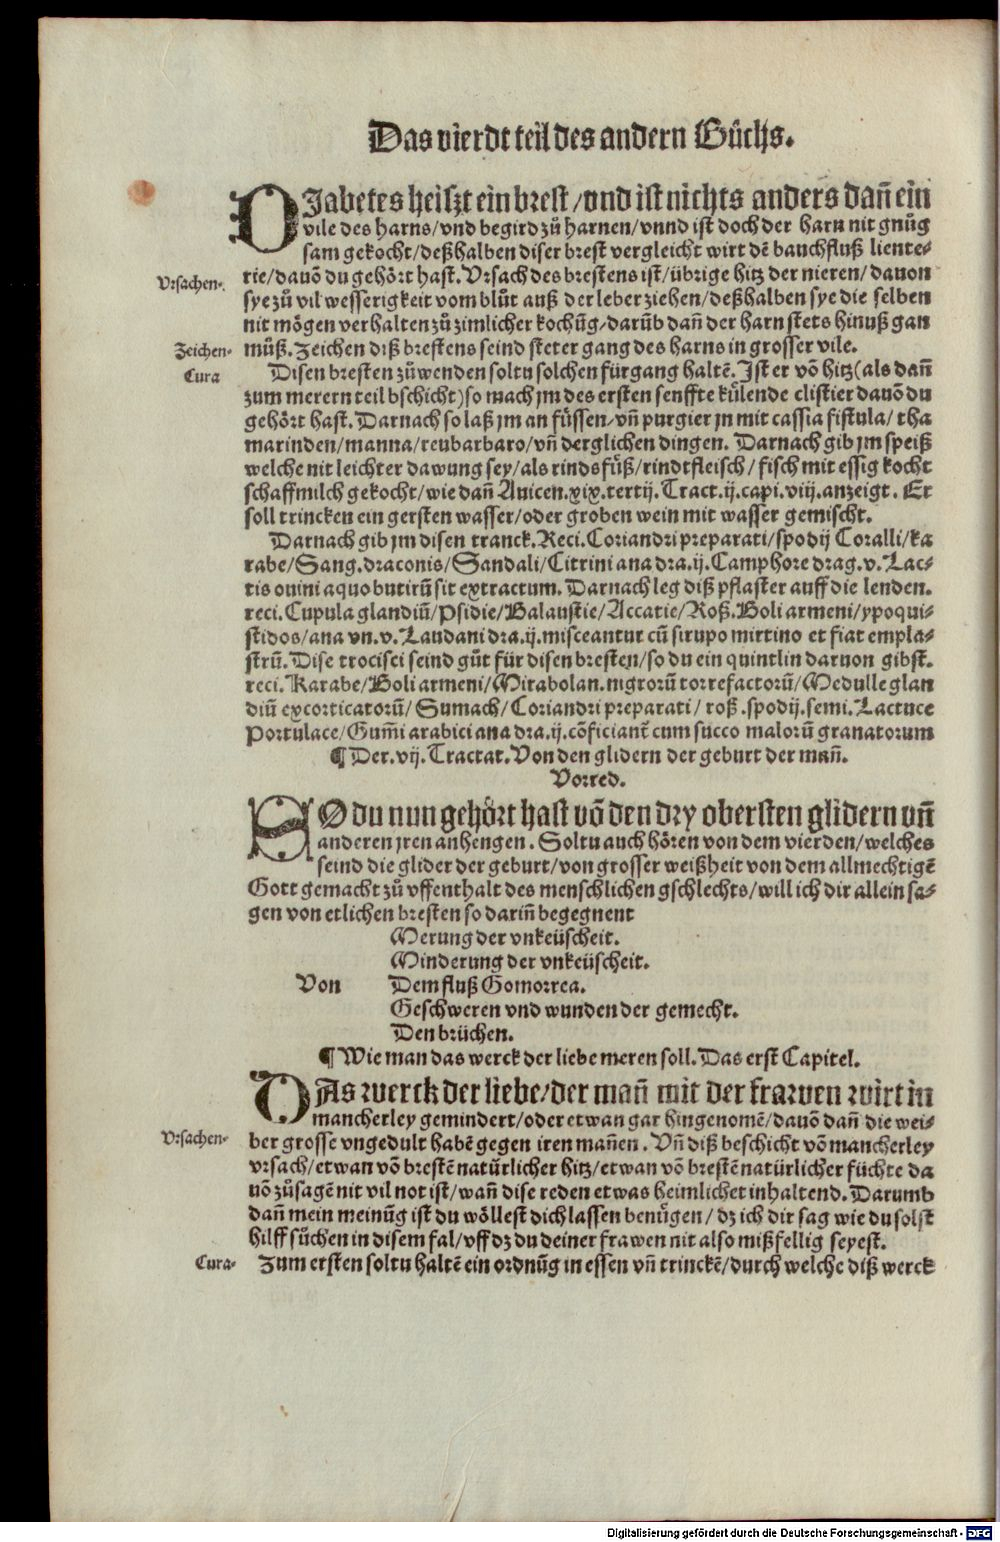 Das vierdt teil des andern Bůchs.
DJabetes heiſzt ein breſt/vnd iſt nichts anders dañ ein
vile des harns/vnd begird zů harnen/vnnd iſt doch der harn nit gnůg
ſam gekocht/deßhalben diſer breſt vergleicht wirt dē bauchfluß liente⸗
Vrſachen. rie/dauō du gehört haſt. Vrſach des breſtens iſt/übrige hitz der nieren/dauon
ſye zů vil weſſerigkeit vom blůt auß der leber ziehen/deßhalben ſye die ſelben
nit mögen verhalten zů zimlicher kochūg/darūb dañ der harn ſtets hinuß gan
Zeichen. můß. Zeichen diß breſtens ſeind ſteter gang des harns in groſſer vile.
Cura Diſen breſten zůwenden ſoltu ſolchen fürgang haltē. Iſt er vō hitz(als dañ
zum merern teil bſchicht)ſo mach jm des erſten ſenffte kůlende cliſtier dauō du
gehört haſt. Darnach ſo laß jm an füſſen/vñ purgier jn mit caſſia fiſtula/tha
marinden/manna/reubarbaro/vñ derglichen dingen. Darnach gib jm ſpeiß
welche nit leichter dawung ſey/als rinds füß/rindtfleiſch/fiſch mit eſſig kocht
ſchaffmilch gekocht/wie dañ Auicen.xix.tertij.Tract.ij.capi.viij.anzeigt. Er
ſoll trincken ein gerſten waſſer/oder groben wein mit waſſer gemiſcht.
Darnach gib jm diſen tranck.Reci.Coriandri preparati/ſpodij Coralli/ka
rabe/Sang.draconis/Sandali/Citrini ana dra.ij.Camphore drag.v.Lac⸗
tis ouini a quo butirū ſit extractum.Darnach leg diß pflaſter auff die lenden.
reci.Cupula glandiū/Pſidie/Balauſtie/Accatie/Roß.Boli armeni/ypoqui⸗
ſtidos/ana vn.v.Laudani dra.ij.miſceantur cū ſirupo mirtino et fiat empla⸗
ſtrū.Diſe trociſci ſeind gůt für diſen breſten/ſo du ein quintlin daruon gibſt.
reci.Karabe/Boli armeni/Mirabolan.nigrorū torrefactorū/Medulle glan
diū excorticatorū/Sumach/Coriandri preparati/roß.ſpodij.ſemi.Lactuce
Portulace/Gum̄i arabici ana dra.ij.cōficiant̄ cum ſucco malorū granatorum
¶ Der.vij.Tractat.Von den glidern der geburt der mañ.
Vorred.
SO du nun gehört haſt vō den dry oberſten glidern vñ
anderen jren anhengen. Soltu auch hören von dem vierden/welches
ſeind die glider der geburt/von groſſer weißheit von dem allmechtigē
Gott gemacht zů vffenthalt des menſchlichen gſchlechts/will ich dir allein ſa⸗
gen von etlichen breſten ſo dariñ begegnent
Merung der vnkeüſcheit.
Minderung der vnkeüſcheit.
Von Dem fluß Gomorrea.
Geſchweren vnd wunden der gemecht.
Den brüchen.
¶ Wie man das werck der liebe meren ſoll.Das erſt Capitel.
DAs werck der liebe/der mañ mit der frawen wirt in
mancherley gemindert/oder etwan gar hingenomē/dauō dañ die wei⸗
Vrſachen. ber groſſe vngedult habē gegen iren mañen. Vñ diß beſchicht vō mancherley
vrſach/etwan vō breſtē natürlicher hitz/etwan vō breſtē natürlicher füchte da
uō zůſagē nit vil not iſt/wañ diſe reden etwas heimlichet inhaltend. Darumb
dañ mein meinūg iſt du wölleſt dich laſſen benügen/dz ich dir ſag wie du ſolſt
hilff ſůchen in diſem fal/vff dz du deiner frawen nit alſo mißfellig ſeyeſt.
Cura. Zum erſten ſoltu haltē ein ordnūg in eſſen vñ trinckē/durch welche diß werck
Digitalisierung gefördert durch die Deutsche Forschungsgemeinschaft - DFG